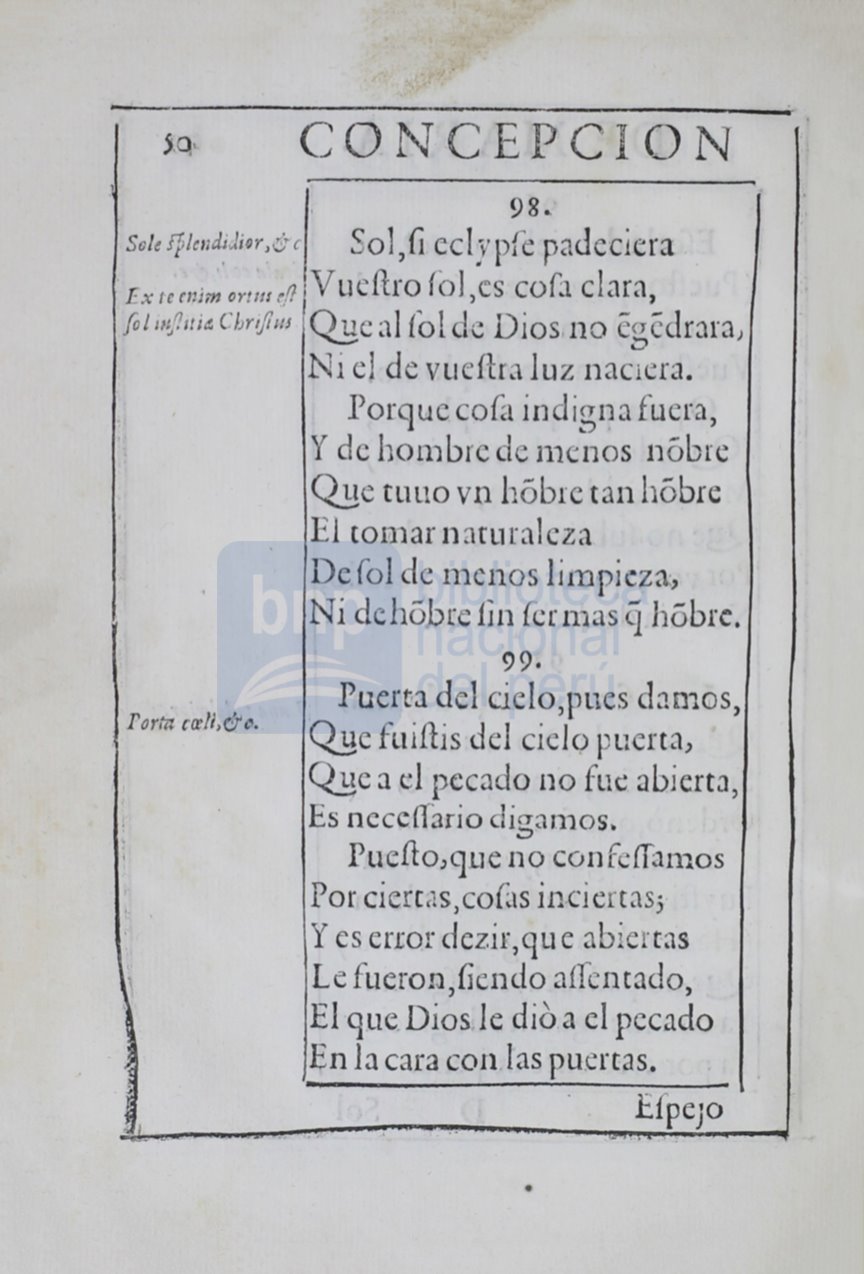 50 CONCEPCION
98.
Sole ſplendidior, &c
Sol, ſi eclypſe padeciera
Ex te enim ortus eſt
Vueſtro ſol, es coſa clara,
ſol iuſtitiæ Chriſtus
Que al ſol de Dios no ẽgẽdrara,
Ni el de vueſtra luz naciera.
Porque coſa indigna fuera,
Y de hombre de menos nõbre
Que tuuo vn hõbre tan hõbre
El tomar naturaleza
De ſol de menos limpieza,
Ni de hõbre ſin ſer mas q̃ hõbre.
99.
Puerta del cielo, pues damos,
Porta cœli, &c.
Que fuiſtis del cielo puerta,
Que a el pecado no fue abierta,
Es neceſſario digamos.
Pueſto, que no confeſſamos
Por ciertas, coſas inciertas;
Y es error dezir, que abiertas
Le fueron, ſiendo aſſentado,
El que Dios le diò a el pecado
En la cara con las puertas.
Eſpejo
bnp biblioteca
nacional
del perú